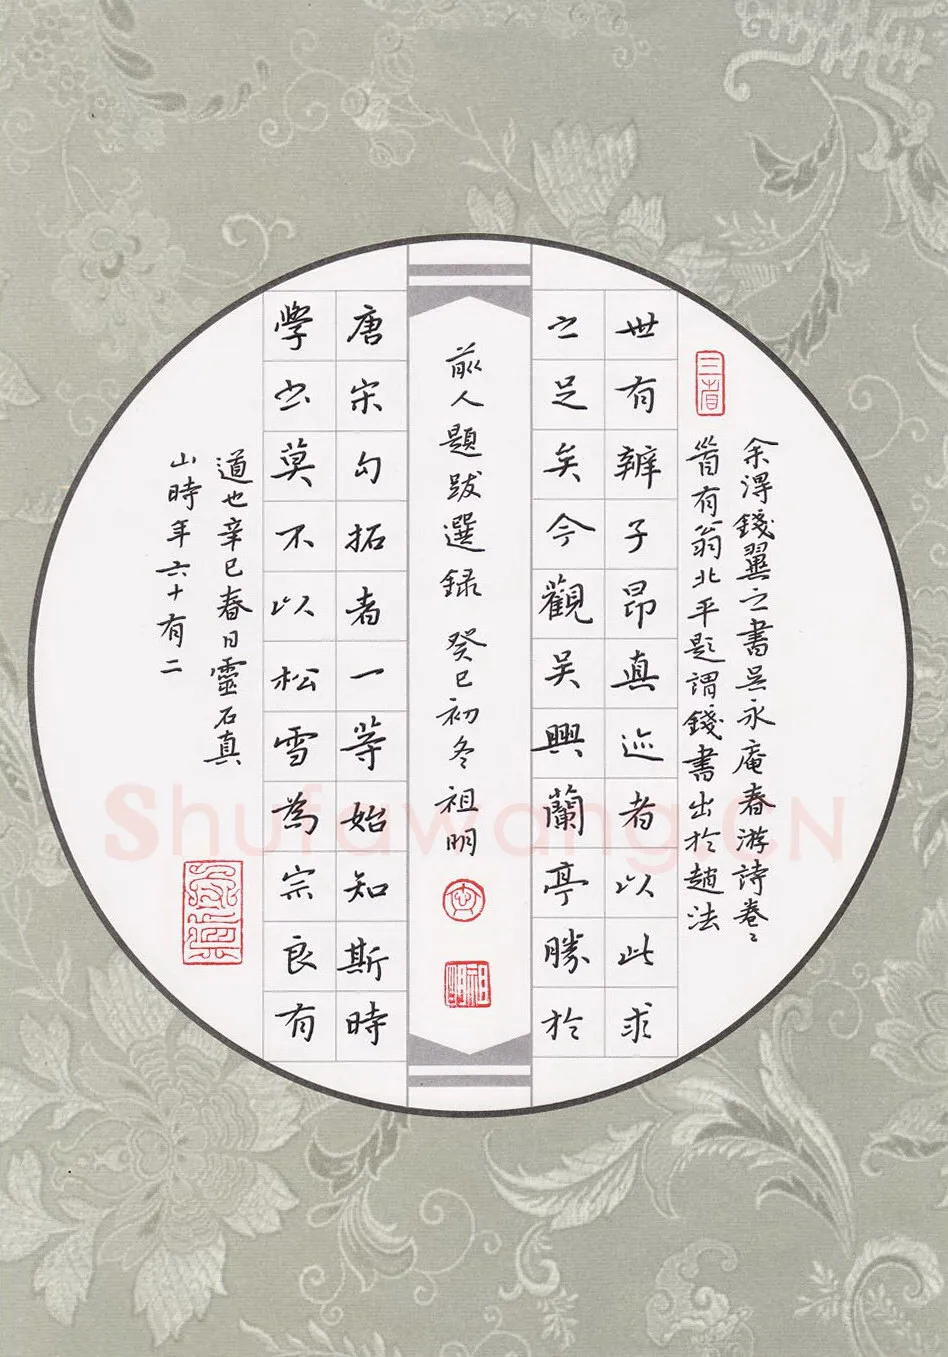 余得錢翼之書吳永庵春游詩卷〻
首有翁北平題謂錢書出於趙法
世有辨子昂真迹者以此求
之足矣今觀吳興蘭亭勝於
前人題跋選録 癸巳初冬祖明
唐宋勾拓者一等始知斯時
學書莫不以松雪為宗良有
道也辛巳春日靈石真
山時年六十有二
三省
祖明
Shufawang.CN